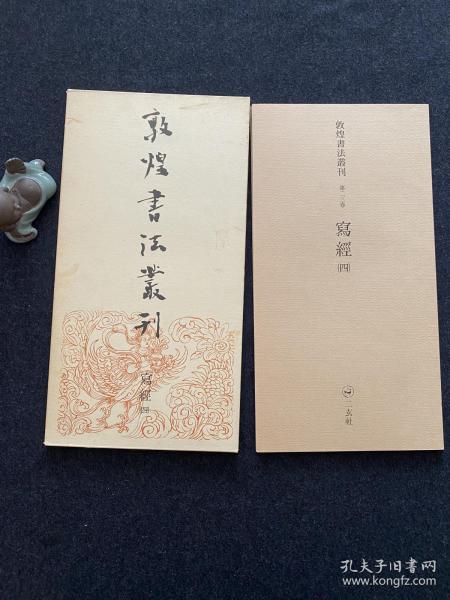 敦煌書法叢刊
寫經
㈣
敦煌書法叢刊
寫經
㈣
二玄社
孔夫子旧书网
www.kongfz.com